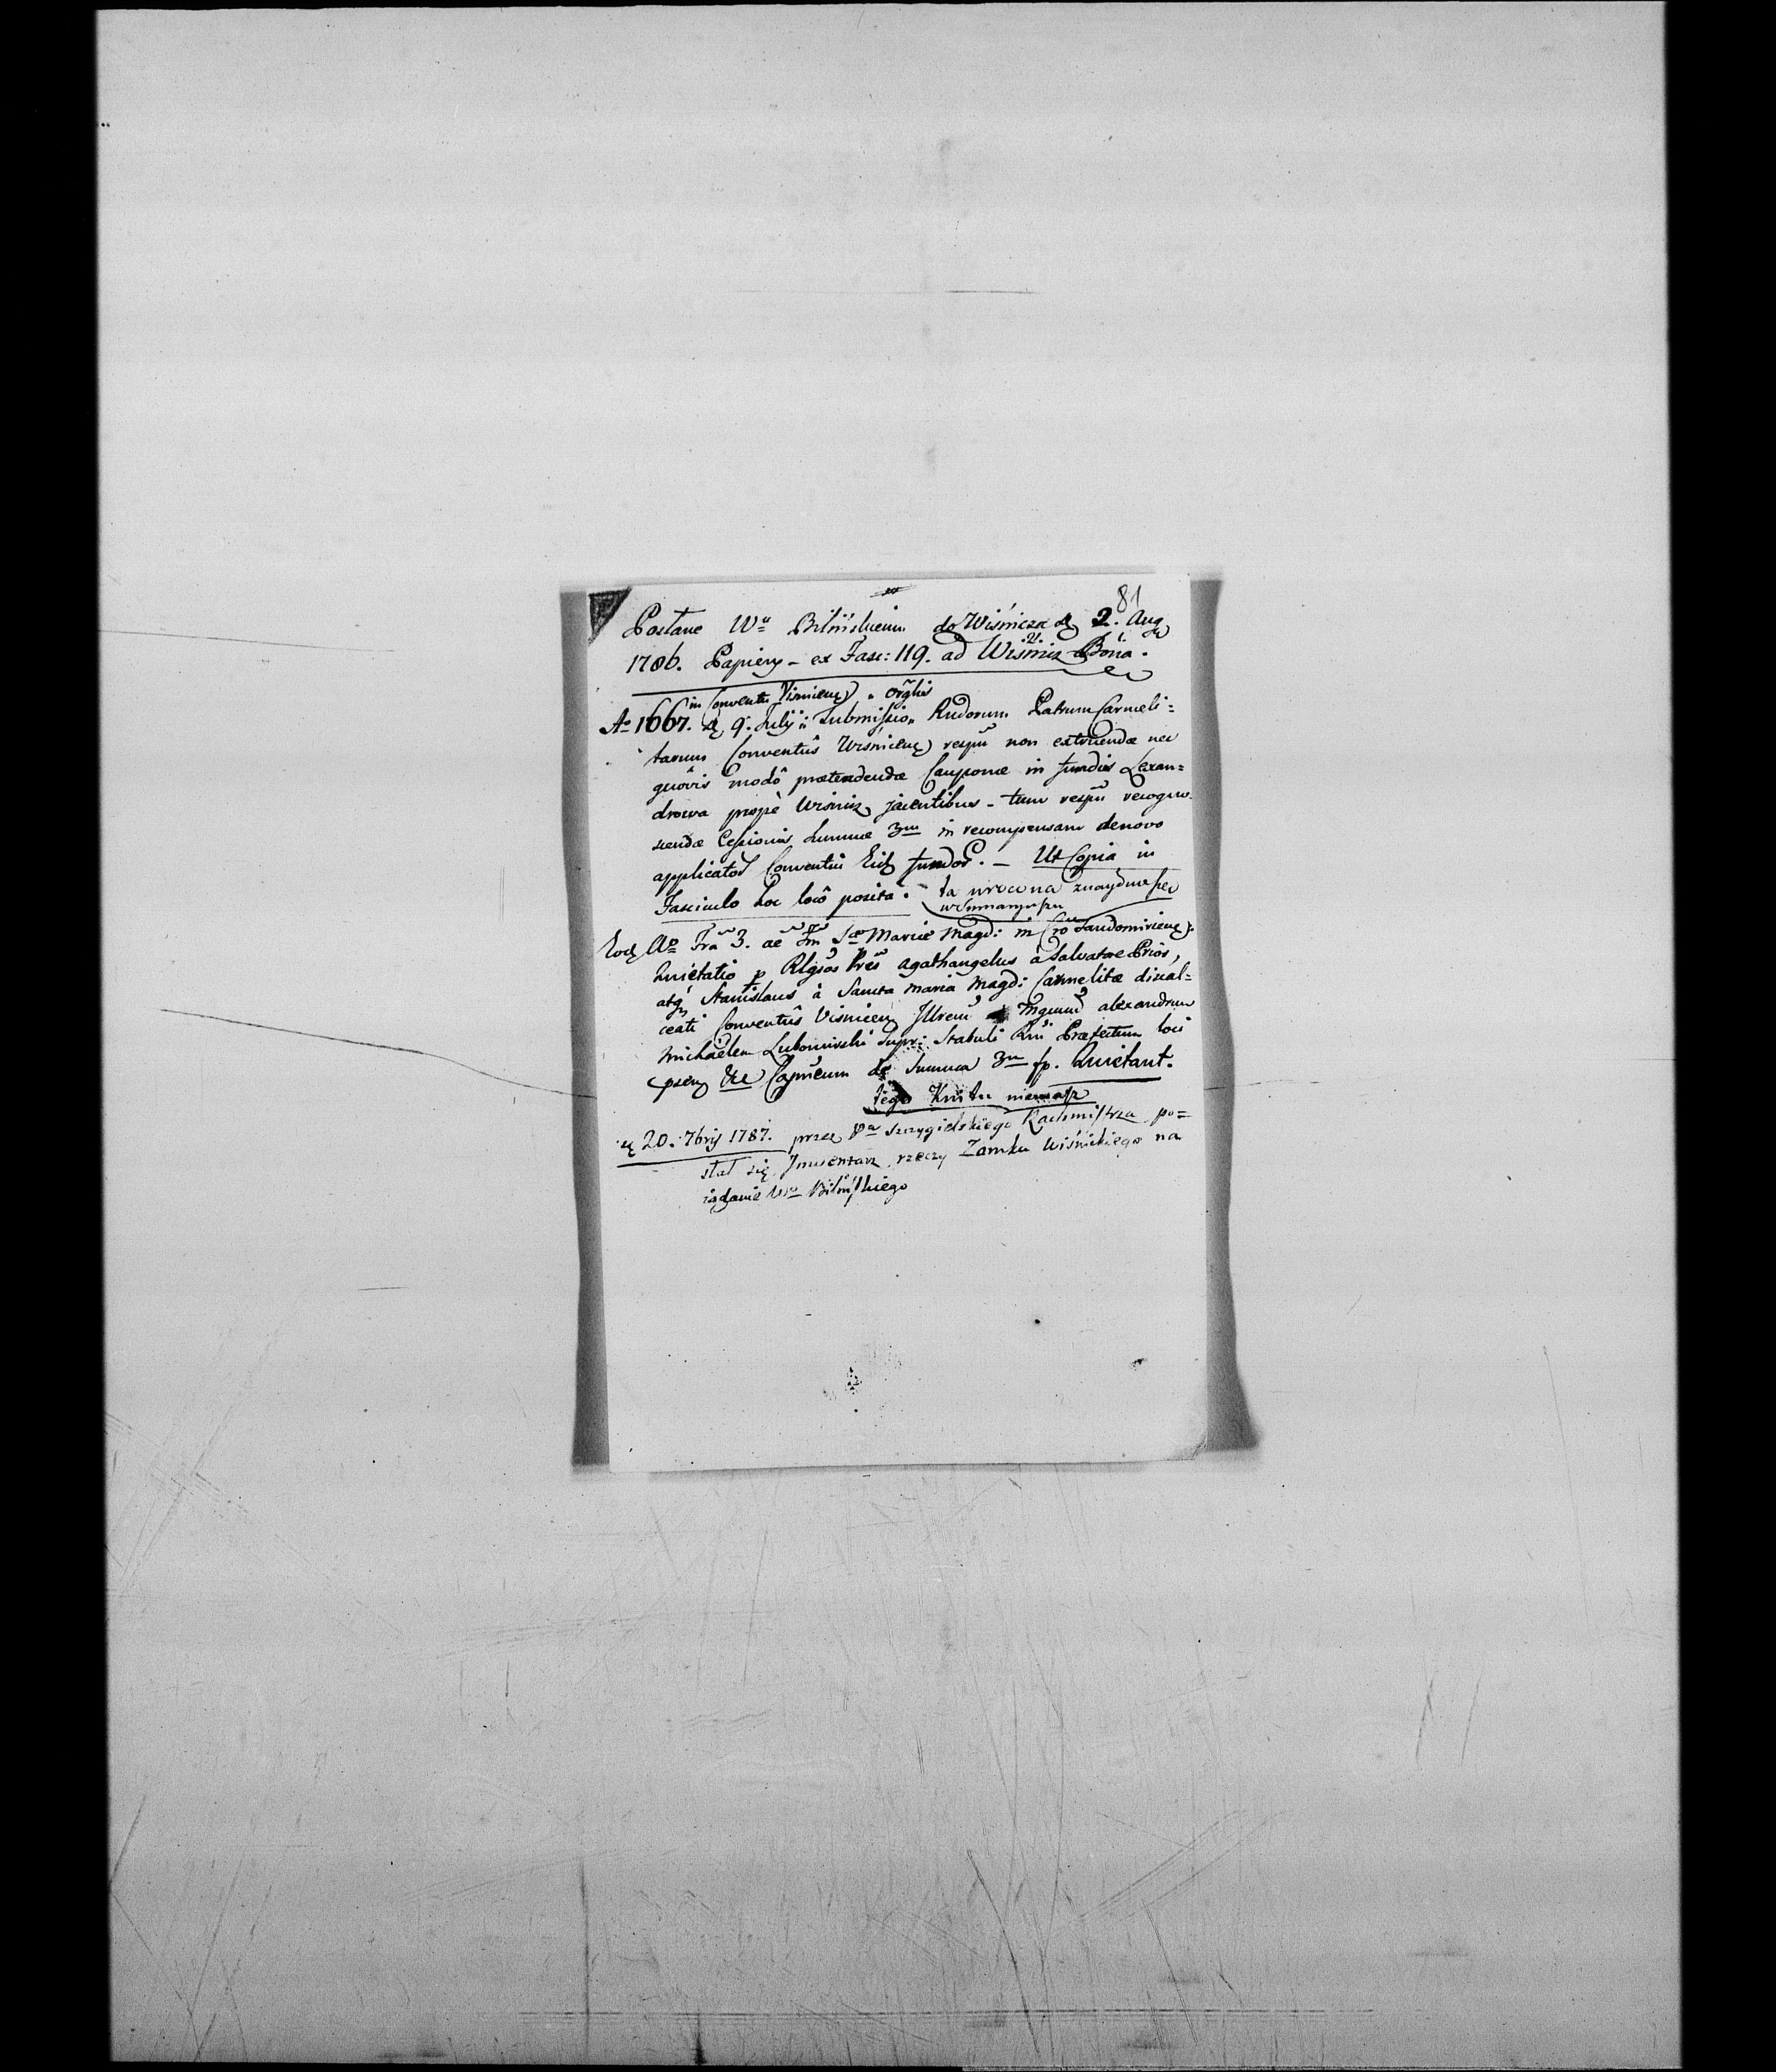 81
Posłane Wu Bilińskiemu do Wiśnicza d. 2. Aug
1786. Papiery - ex Fasc: 119. ad Wiśnicz Bona.
in Conventu Visnicen) origlis
Ao 1667. d. 9. Julij: Submissio Rndorum Patrum Carmeli=
tarum Conventûs Wisnicen) respũ non extruendæ nec
quovis modô prætendendæ Cauponæ in fundis Lexan=
drowa propè Wisnicz jacentibus - tum respũ recogno-
scendæ Cessionis Summæ 3m in recompensam denovo
applicator Conventui Eid fundor. - Ut Copia in
Fasciculo hoc locô posita. ta wrocona znayduie się
w Summaryuszu
Eod Ao Fra 3. ae Fm Stæ Mariæ Magd: in Cro Sandomirien).
Quietatio p Rlgsos Pres Agathangelus à Salvatore Prior,
atq Stanislaus à Sancta Maria Magd: Carmelitæ discal=
ceati Conventûs Visnicen Illrem Mgnum Alexandrum
Michaelem Lubomirski Supr: Stabuli Rni Præfectum loci
psen &c Capneum de Summa 3m fp. Quietant.
tego Kwitu niemasz
d 20. 7bris 1787. przez Pa Szczygielskiego Rachmistrza po=
słał się Inwentarz rzeczy Zamku Wiśnickiego na
żądanie Wo Bilińskiego